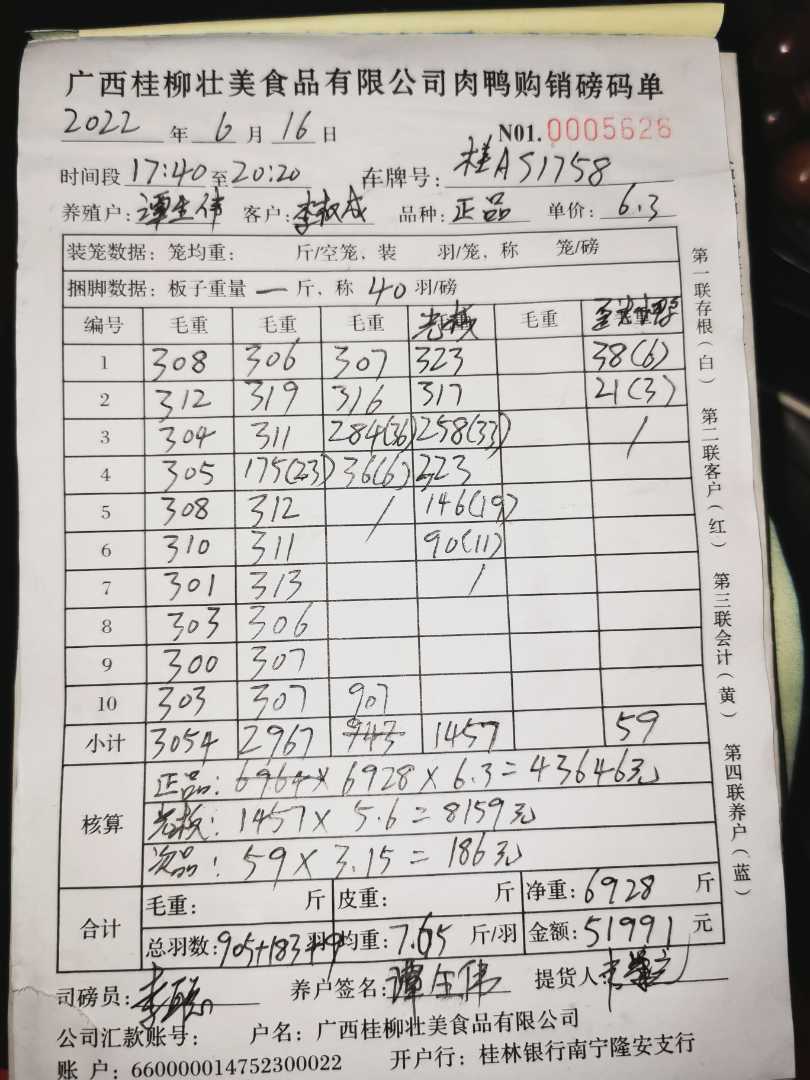 广西桂柳壮美食品有限公司肉鸭购销磅码单
2022 年 6 月 16 日 N01. 0005626
时间段 17:40 至 20:20 车牌号: 桂AS1758
养殖户: 谭生伟 客户: 李叔成 品种: 正品 单价: 6.3
装笼数据: 笼均重: 斤/空笼, 装 羽/笼, 称 笼/磅
捆脚数据: 板子重量 一 斤, 称 40 羽/磅
编号 毛重 毛重 毛重 光板 毛重
1 308 306 307 323 38(6)
2 312 319 316 317 21(3)
3 304 311 284(36) 258(33) /
4 305 175(23) 36(6) 323
5 308 312 / 146(19)
6 310 311 90(11)
7 301 313 /
8 303 306
9 300 307
10 303 307 907
小计 3054 2967 943 1457 59
核算
正品: 6964× 6928 × 6.3 = 43646元
光板: 1457 × 5.6 = 8159元
次品: 59 × 3.15 = 186元
合计
毛重: 斤 皮重: 斤 净重: 6928 斤
总羽数: 905+183+9 羽 均重: 7.65 斤/羽 金额: 51991 元
司磅员: 养户签名: 谭生伟 提货人
公司汇款账号: 户名: 广西桂柳壮美食品有限公司
账 户: 660000014752300022 开户行: 桂林银行南宁隆安支行
第一联存根(白) 第二联客户(红) 第三联会计(黄) 第四联养户(蓝)